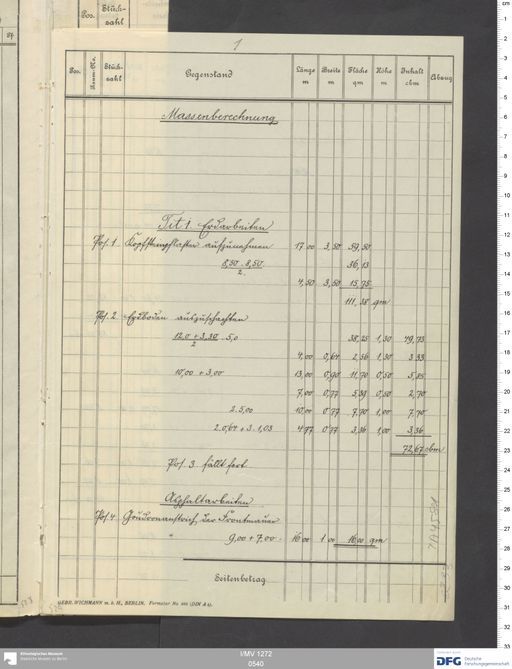 Pos.
Stück-
zahl
1
Pos.
Raum-No.
Stück-
zahl
Gegenstand
Länge
m
Breite
m
Fläche
qm
Höhe
m
Inhalt
cbm
Abzug
Massenberechnung
Tit 1. Erdarbeiten
Pos. 1 Kopfsteinpflaster aufzunehmen 17,00 3,50 59,50
8,50 . 8,50 36,13
2
4,50 3,50 15,75
111,38 qm
Pos. 2 Erdboden auszuschachten
12,0 + 3,30 . 5,0 38,25 1,30 49,73
2
4,00 0,64 2,56 1,30 3,33
10,00 + 3,00 13,00 0,90 11,70 0,50 5,85
7,00 0,77 5,39 0,50 2,70
2. 5,00 10,00 0,77 7,70 1,00 7,70
2. 0,64 + 3. 1,03 4,77 0,77 3,36 1,00 3,36
72,67 cbm
Pos. 3 fällt fort
Asphaltarbeiten
Pos. 4 Goudronanstrich der Frontmauer
" 9,00 + 7,00 16,00 1,00 16,00 qm
Seitenbetrag
GEBR. WICHMANN m. b. H., BERLIN.
Ethnologisches Museum
Staatliche Museen zu Berlin
I/MV 1272
0540
DFG
Deutsche
Forschungsgemeinschaft